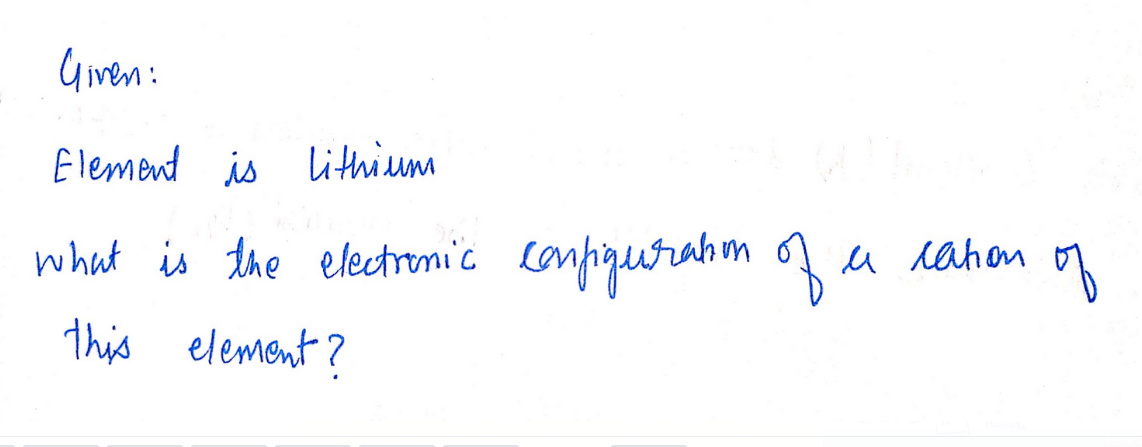 Given:
Element is lithium
what is the electronic configuration of a cation of
this element?